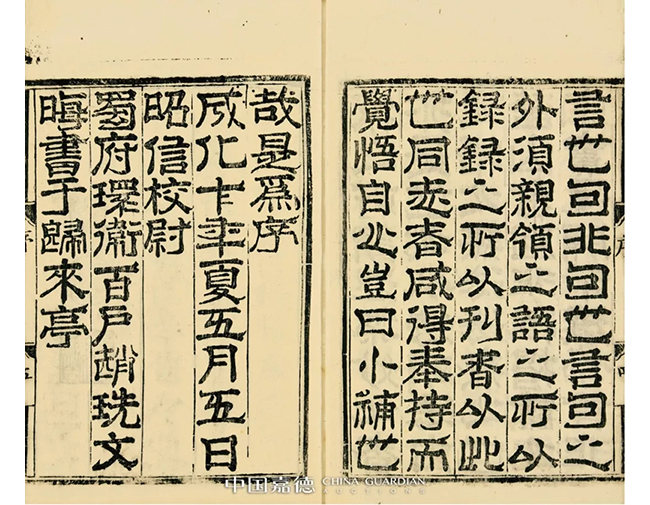 序
四
言也回非回也言回之
外須親領之語之所以
録録之所以刊者以此
也同志者咸得奉持而
覺悟自心豈曰小補也
哉是爲序
成化年夏五月五日
昭信校尉
蜀府環衛百戶趙珖文
晦書于歸來亭
序
五
中国嘉德 CHINA GUARDIAN
AUCTIONS